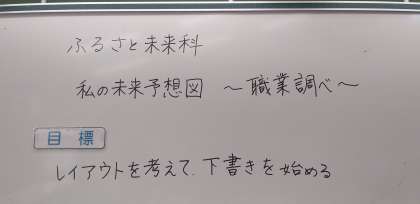 ふるさと未来科
私の未来予想図 ～職業調べ～
目標
レイアウトを考えて、下書きを始める